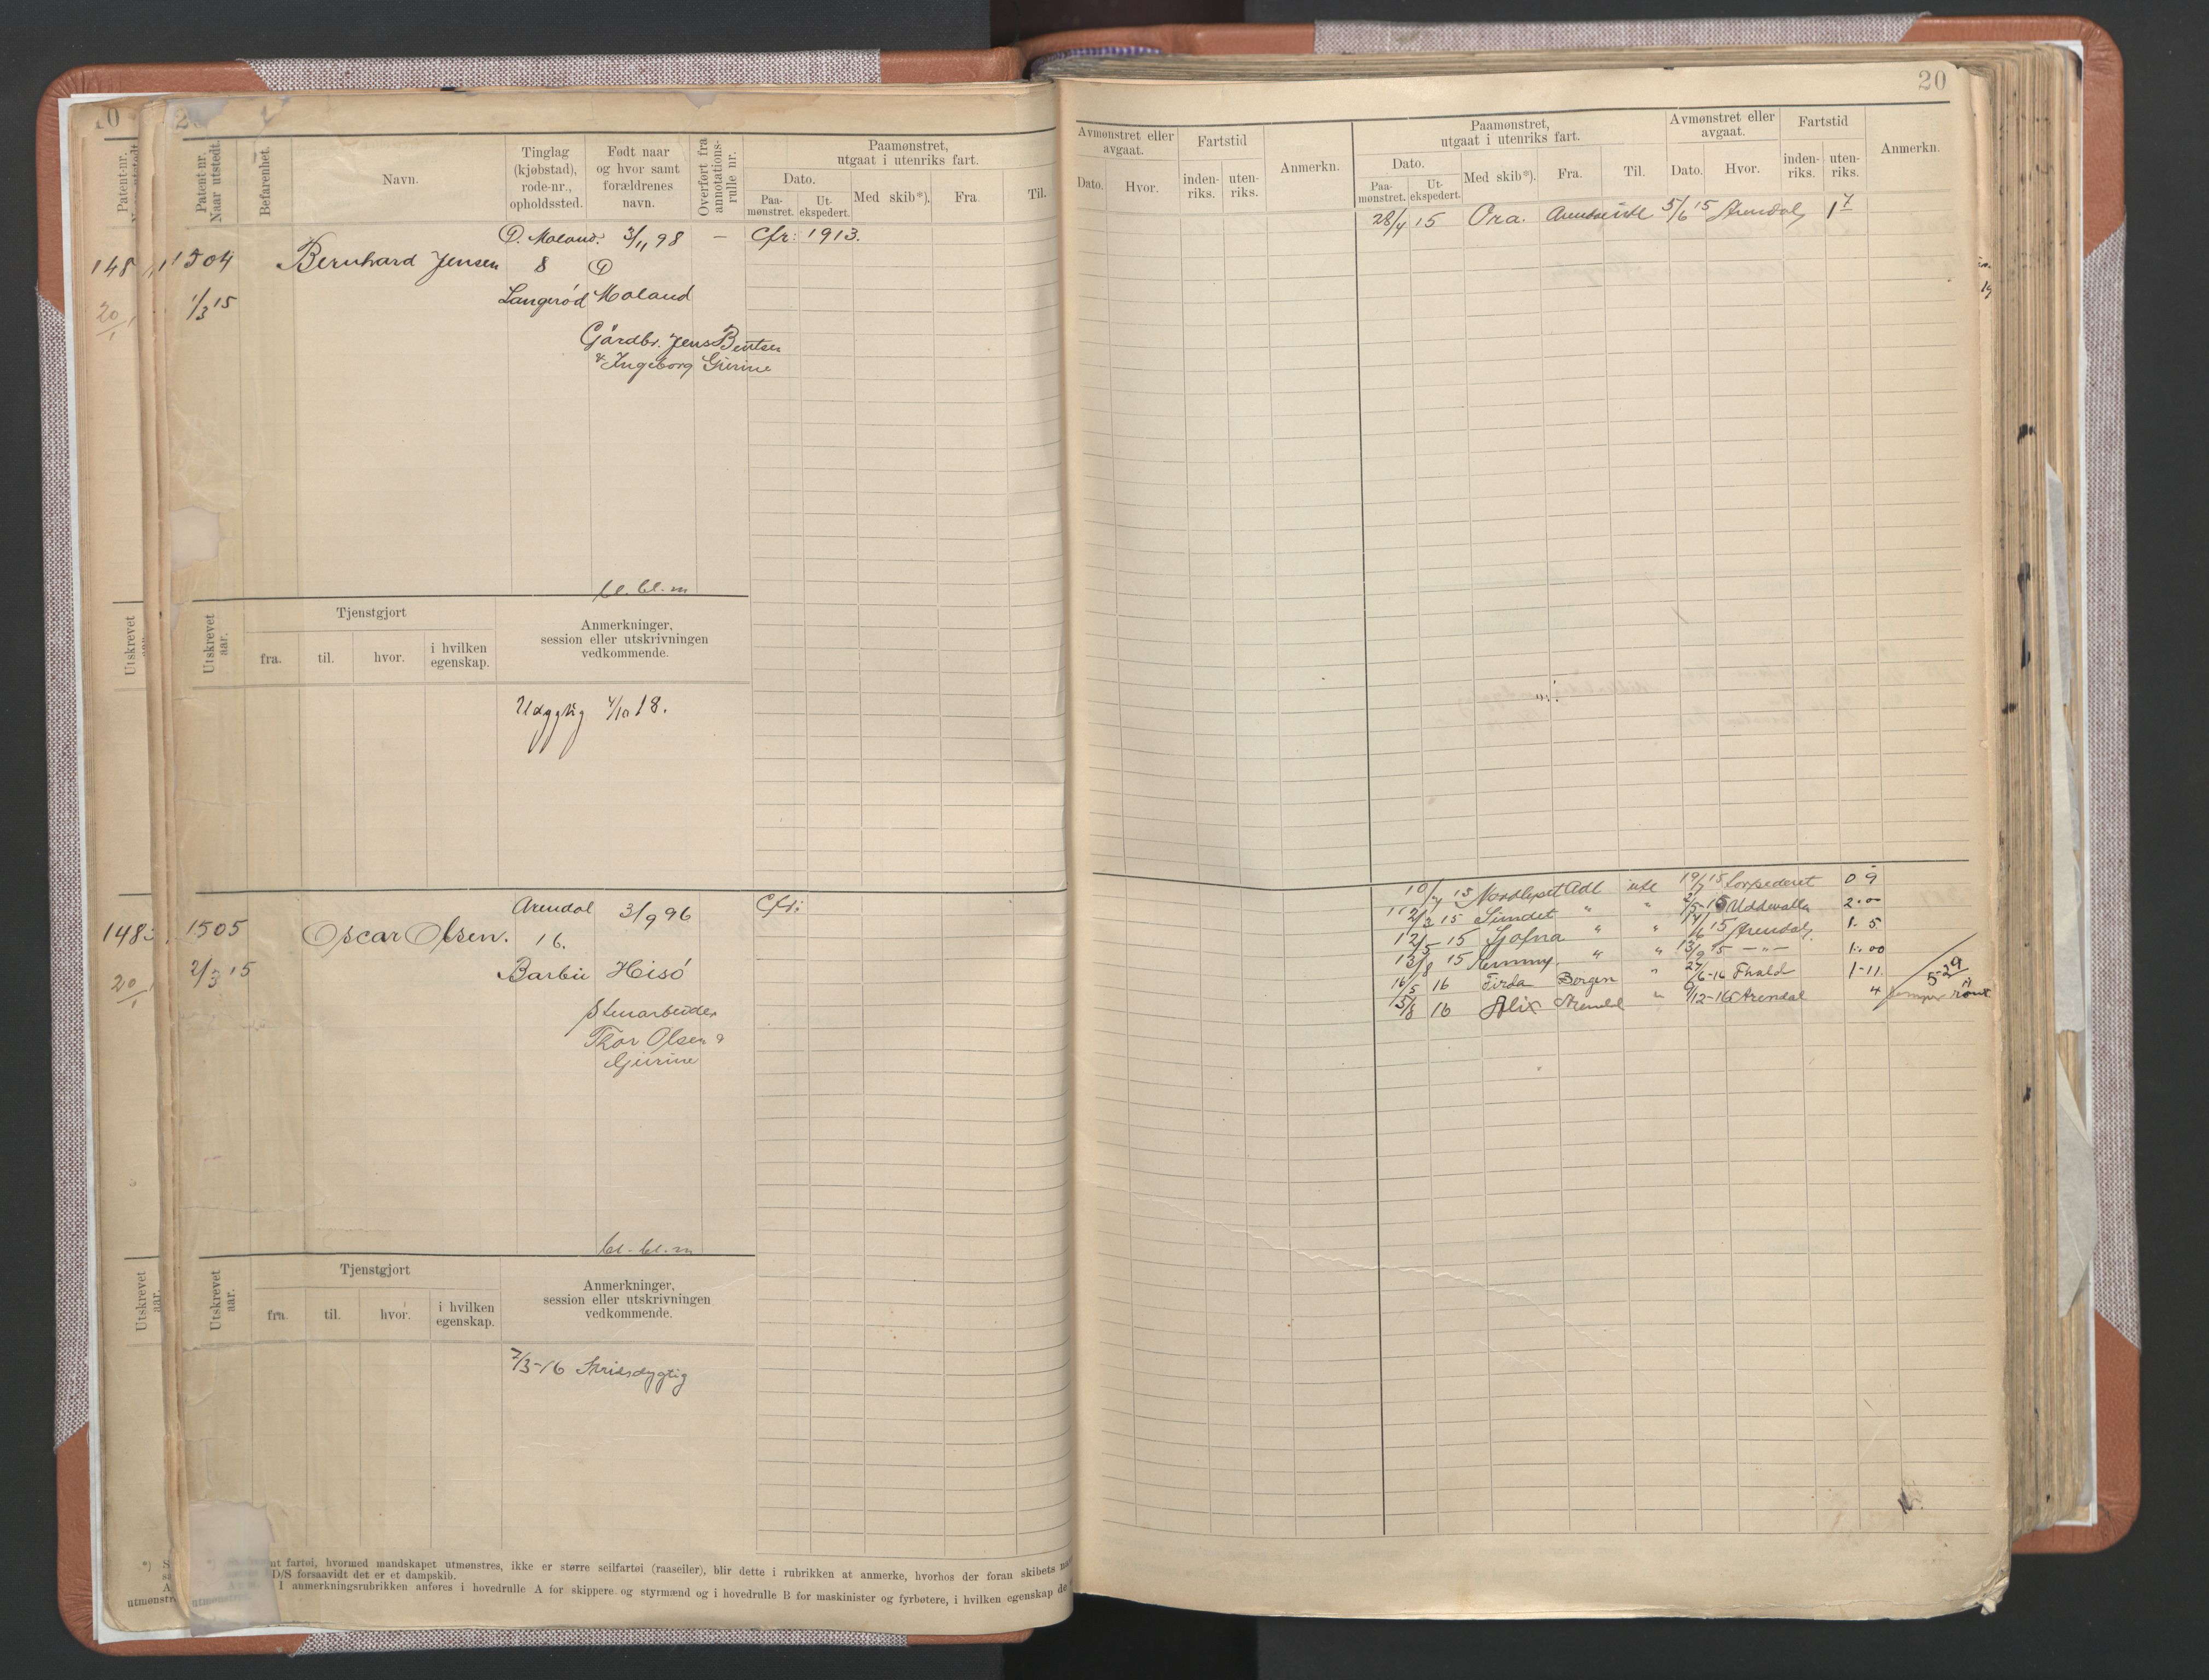 20
Patent-nr. Naar utstedt.
Befarenhet.
Navn.
Tinglag (kjøbstad), rode-nr., opholdssted.
Født naar og hvor samt forældrenes navn.
Overført fra annotations-rulle nr.
Paamønstret, utgaat i utenriks fart.
Dato.
Paa-mønstret.
Ut-ekspedert.
Med skib*).
Fra.
Til.
Avmønstret eller avgaat.
Dato.
Hvor.
Fartstid
inden-riks.
uten-riks.
Anmerkn.
Paamønstret, utgaat i utenriks fart.
Dato.
Paa-mønstret.
Ut-ekspedert.
Med skib*).
Fra.
Til.
Avmønstret eller avgaat.
Dato.
Hvor.
Fartstid
inden-riks.
uten-riks.
Anmerkn.
1504
1/3 15
Bernhard Jensen
Ø. Moland.
8
Langerød
3/11 98
Ø
Moland
Gårdbr. Jens Bentsen
& Ingeborg Gurine
—
Cfr: 1913.
28/4 15 Ora. 5/6 15 Arendal 1 7
bl. bl. m
Utskrevet aar.
Tjenstgjort
fra.
til.
hvor.
i hvilken egenskap.
Anmerkninger, session eller utskrivningen vedkommende.
4/10 18.
1505
2/3 15
Oscar Olsen.
Arendal
16.
Barbu
3/9 96
Hisö
Stenarbeider
Thor Olsen &
Gurine
Cfr:
Adl utl 19/7 15 Torpederet 0 9
2/3 15 Sundet " " Uddevalla 2.00
12/5 15 " " Arendal 1. 5
13/8 15 " " 13/9 15 — " — 1.00
16/5 16 Firda Borgen " 27/6-16 1-11.
15/8 16 Alix Arendal " 9/12-16 Arendal 4
5-29
bl. bl. m
Utskrevet aar.
Tjenstgjort
fra.
til.
hvor.
i hvilken egenskap.
Anmerkninger, session eller utskrivningen vedkommende.
7/3-16 Krigsdygtig
nt fartøi, hvormed mandskapet utmønstres, ikke er større seilfartøi (raaseiler), blir dette i rubrikken at anmerke, hvorhos der foran skibets
D/S forsaavidt det er et dampskib.
I anmerkningsrubrikken anføres i hovedrulle A for skippere og styrmænd og i hovedrulle B for maskinister og fyrbøtere, i hvilken egenskap de